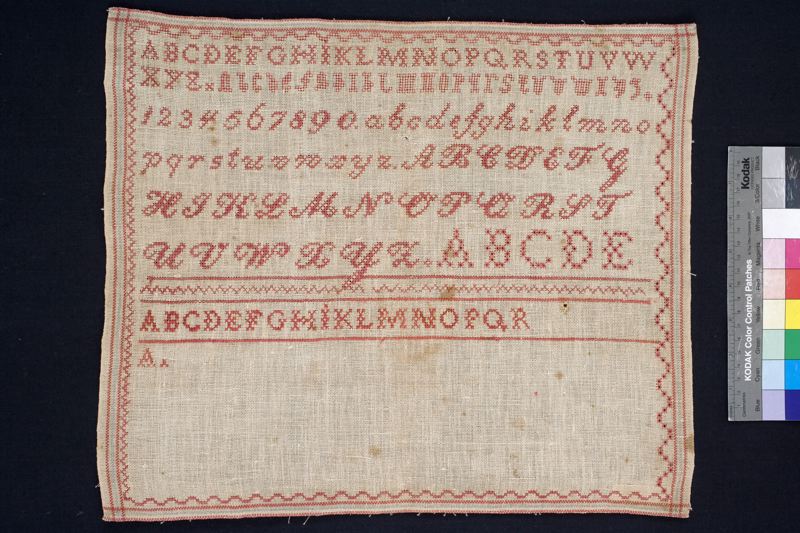 ABCDEFGHIKLMNOPQRSTUVW
XYZ.
1234567890.abcdefghiklmno
pqrstuvwxyz.ABCDEFG
HIKLMNOPQRST
UVWXYZ.ABCDE
ABCDEFGHIKLMNOPQR
A.
Kodak
KODAK Color Control Patches
Blue
Cyan
Green
Yellow
Red
Magenta
White
3/Color
Black